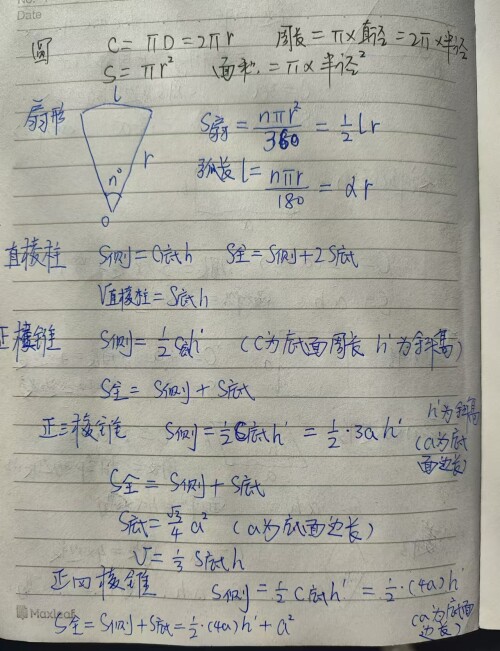 No.
Date
圆 C = πD = 2πr 周长 = π×直径 = 2π×半径
S = πr² 面积 = π×半径²
扇形 l r n° O S扇 = nπr²/360 = 1/2 lr
弧长 l = nπr/180 = αr
直棱柱 S侧 = C底h S全 = S侧 + 2S底
V直棱柱 = S底h
正棱锥 S侧 = 1/2 C底h' (C为底面周长 h'为斜高)
S全 = S侧 + S底
正三棱锥 S侧 = 1/2 C底h' = 1/2·3ah' h'为斜高 (a为底面边长)
S全 = S侧 + S底
S底 = √3/4 a² (a为底面边长)
V = 1/3 S底h
正四棱锥 S侧 = 1/2 C底h' = 1/2·(4a)h'
S全 = S侧 + S底 = 1/2·(4a)h' + a² (a为底面边长)
Maxleaf